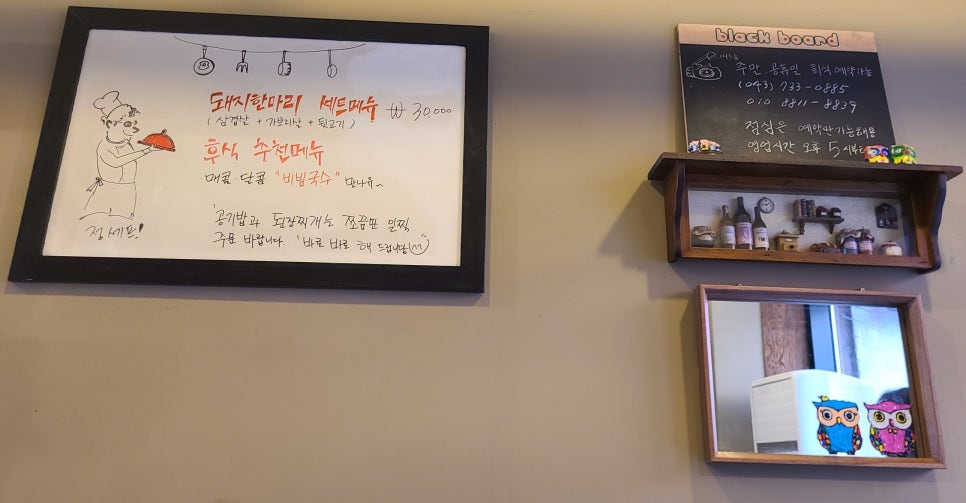 돼지한마리 세트메뉴 ₩ 30,000
(삼겹살 + 가브리살 + 뒷고기)
후식 추천메뉴
매콤·달콤 "비빔국수" 만나유~
공기밥과 된장찌개는 쪼끔만 일찍
주문 바랍니다. '바로 바로 해 드립니다!
정세프!
black board
주말 공휴일 회식 예약가능
(043) 733-0885
010 8811-8839
점심은 예약만가능해용
영업시간 오후 5시부터